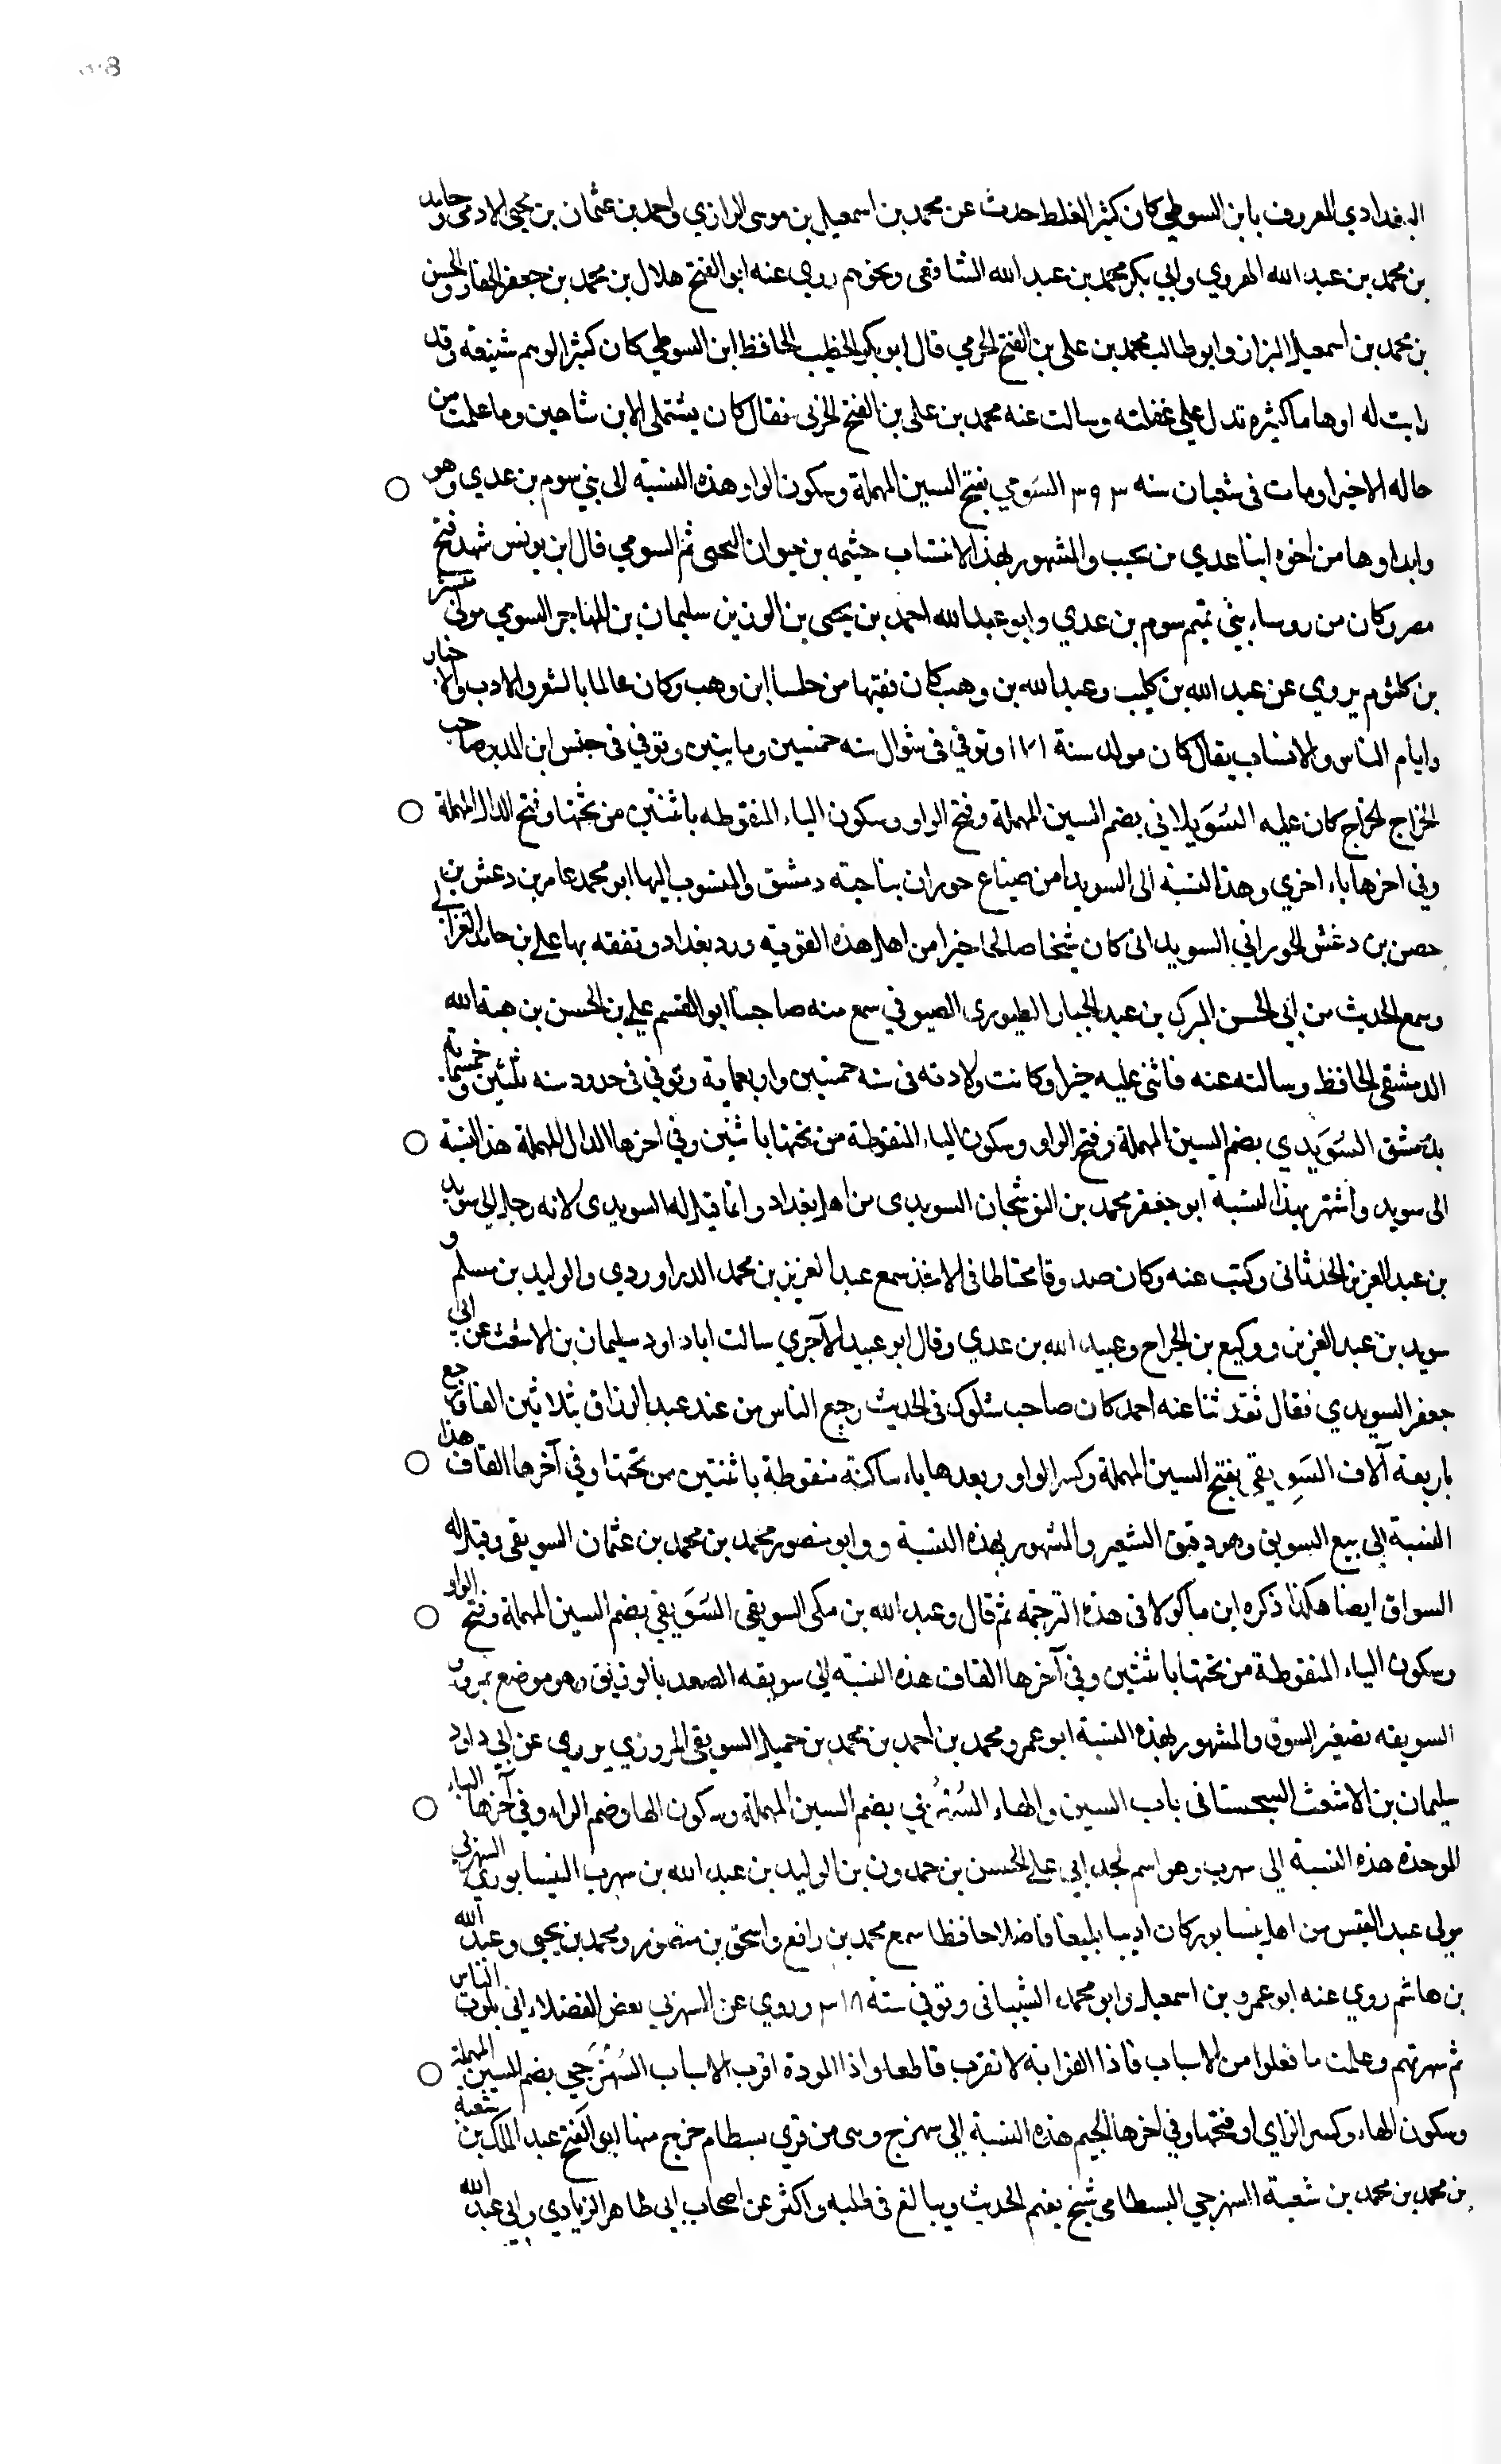 البغدادي المعروف بابن السوطي كان كثير الغلط حدث عن محمد بن اسمعيل بن موسى الرازي واحمد بن عثمان بن يحيى الادمي وحامد
بن محمد بن عبد الله الهروي وابي بكر محمد بن عبد الله الشافعي ونحوهم روى عنه ابو الفتح هلال بن محمد بن جعفر الحفار والحسن
بن محمد بن اسمعيل البزاز وابو طالب محمد بن علي بن الفتح الحربي قال ابو بكر الخطيب الحافظ ابن السوطي كان كثير الوهم شنيعه وقد
رايت له اوهاما كثيره تدل على غفلته وسالت عنه محمد بن علي بن الفتح الحربي فقال كان يستملي لابن شاهين وما علمت من
حاله الا خيرا ومات في شعبان سنه ٣٩٣ السَومي بفتح السين المهملة وسكون الواو هذه النسبة الى بني سوم بن عدي وهو
وابداوها من اخوه ابنا عدي من تجيب والمشهور بهذا الانتساب خيثمه بن حيوان التجيبي ثم السومي قال ابن يونس شهد فتح
مصر وكان من روساء بني تميم سوم بن عدي وابو عبد الله احمد بن يحيى بن الوزير بن سليمان بن المهاجر السومي مولى قيسبة
بن كلثوم يروي عن عبد الله بن كليب وعبد الله بن وهب كان فقيها من جلساء ابن وهب وكان عالما بالشعر والادب والاخبار
وايام الناس والانساب يقال كان مولده سنة ١٧١ وتوفي في شوال سنه خمسين ومايتين وتوفي في حبس ابن المدبر صاحب
الخراج لخراج كان عليه السُوَيدائي بضم السين المهملة وفتح الواو وسكون الياء المنقوطه باثنتين من تحتها وفتح الدال المهملة
وفي اخرها ياء اخري وهذه النسبة الى السويدا من ضياع حوران بناحية دمشق والمنسوب اليها ابو محمد عامر بن دعش بن
حصن بن دغش الحوراني السويدائي كان شيخا صالحا خيرا من اهل هذه القرية ورد بغداد وتفقه بها على ابي حامد الغزالي
وسمع الحديث من ابي الحسن المبرك بن عبد الجبار الطيوري الصيرفي سمع منه صاحبنا ابو القسم علي بن الحسن بن هبة الله
الدمشقي الحافظ وسالته عنه فاثنى عليه خيرا وكانت ولادته في سنه خمسين واربعماية وتوفي في حدود سنه ثلثين وخمسماية
بدمشق السُوَيدي بضم السين المهملة وفتح الواو وسكون الياء المنقوطة من تحتها باثنتين وفي اخرها الدال المهملة هذه النسبة
الى سويد واشتهر بهذه النسبة ابو جعفر محمد بن النوشجان السويدي من اهل بغداد وانما قيل له السويدي لانه رحل الى سويد
بن عبد العزيز الحدثاني وكتب عنه وكان صدوقا محتاطا في الاخذ سمع عبد العزيز بن محمد الدراوردي والوليد بن مسلم و
سويد بن عبد العزيز ووكيع بن الجراح وعبيد الله بن عدي وقال ابو عبيد الآجري سالت ابا داود سليمان بن الاشعث عن ابي
جعفر السويدي فقال ثقة ثنا عنه احمد كان صاحب شكوك في الحديث رجع الناس من عند عبد الرزاق بثلاثين الفا ورجع
باربعة آلاف السَوِيقي بفتح السين المهملة وكسر الواو وبعدها ياء ساكنة منقوطة باثنتين من تحتها وفي آخرها القاف هذا
النسبة الى بيع السويق وهو دقيق الشعير والمشهور بهذه النسبة ووابو منصور محمد بن محمد بن عثمان السويقي وقيل له
السواق ايضا هكذا ذكره ابن ماكولا في هذه الترجمه ثم قال وعبد الله بن مكي السويقي السُوَيقي بضم السين المهملة وفتح الواو
وسكون الياء المنقوطة من تحتها باثنتين وفي آخرها القاف هذه النسبة الى سويقه الصغد بالوزيق وهو موضع بمرو و
السويقه تصغير السوق والمشهور بهذه النسبة ابو عمرو محمد بن احمد بن محمد بن جميل السويقي المروزي يروي عن ابي داود
سليمان بن الاشعث السجستاني باب السين والهاء السُهرُبي بضم السين المهملة وسكون الها وضم الراء وفي آخرها الباء
الموحدة هذه النسبة الى سهرب وهو اسم لجد ابي علي الحسن بن حمدون بن الوليد بن عبد الله بن سهرب النيسابوري السهربي
مولى عبد القيس من اهل نيسابور كان اديبا بليغا فاضلا حافظا سمع محمد بن رافع واسحق بن منصور ومحمد بن يحيى وعبد الله
بن هاشم روي عنه ابو عمرو بن اسمعيل وابو محمد الشيباني وتوفي سنة ٣١٨ وروي عن السهربي بعض الفضلاء اني بلوت الناس
ثم سبرتهم وعلمت ما فعلوا من الاسباب فاذا القرابة لا تقرب قاطعا واذا المودة اقرب الاسباب السُهْرَجي بضم السين المهملة
وسكون الهاء وكسر الزاي او فتحها وفي اخرها الجيم هذه النسبة الى سهرج وهي من قري بسطام خرج منها ابو الفتح عبد الملك بن شعبة
بن محمد بن محمد بن شعبة السهرجي البسطامي شيخ يفهم الحديث ويبالغ في طلبه واكثر عن اصحاب ابي طاهر الزيادي وابي عبد الله